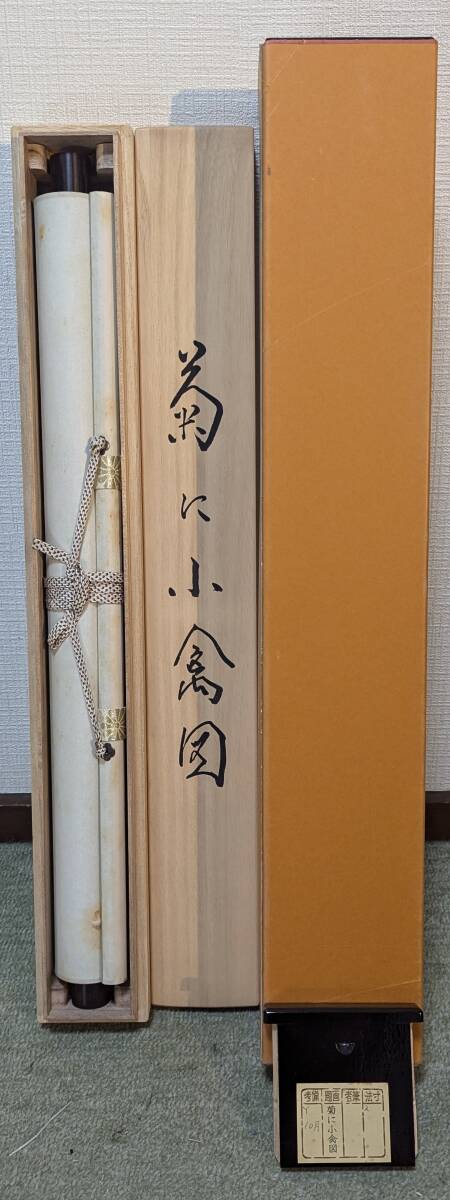 菊に小禽図
寸法
筆者
画題
菊に小禽図
備考
10月